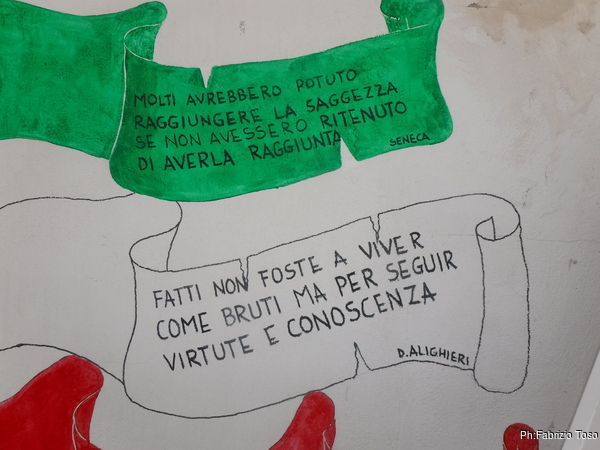 MOLTI AVREBBERO POTUTO
RAGGIUNGERE LA SAGGEZZA
SE NON AVESSERO RITENUTO
DI AVERLA RAGGIUNTA
SENECA
FATTI NON FOSTE A VIVER
COME BRUTI MA PER SEGUIR
VIRTUTE E CONOSCENZA
D.ALIGHIERI
Ph:Fabrizio Toso